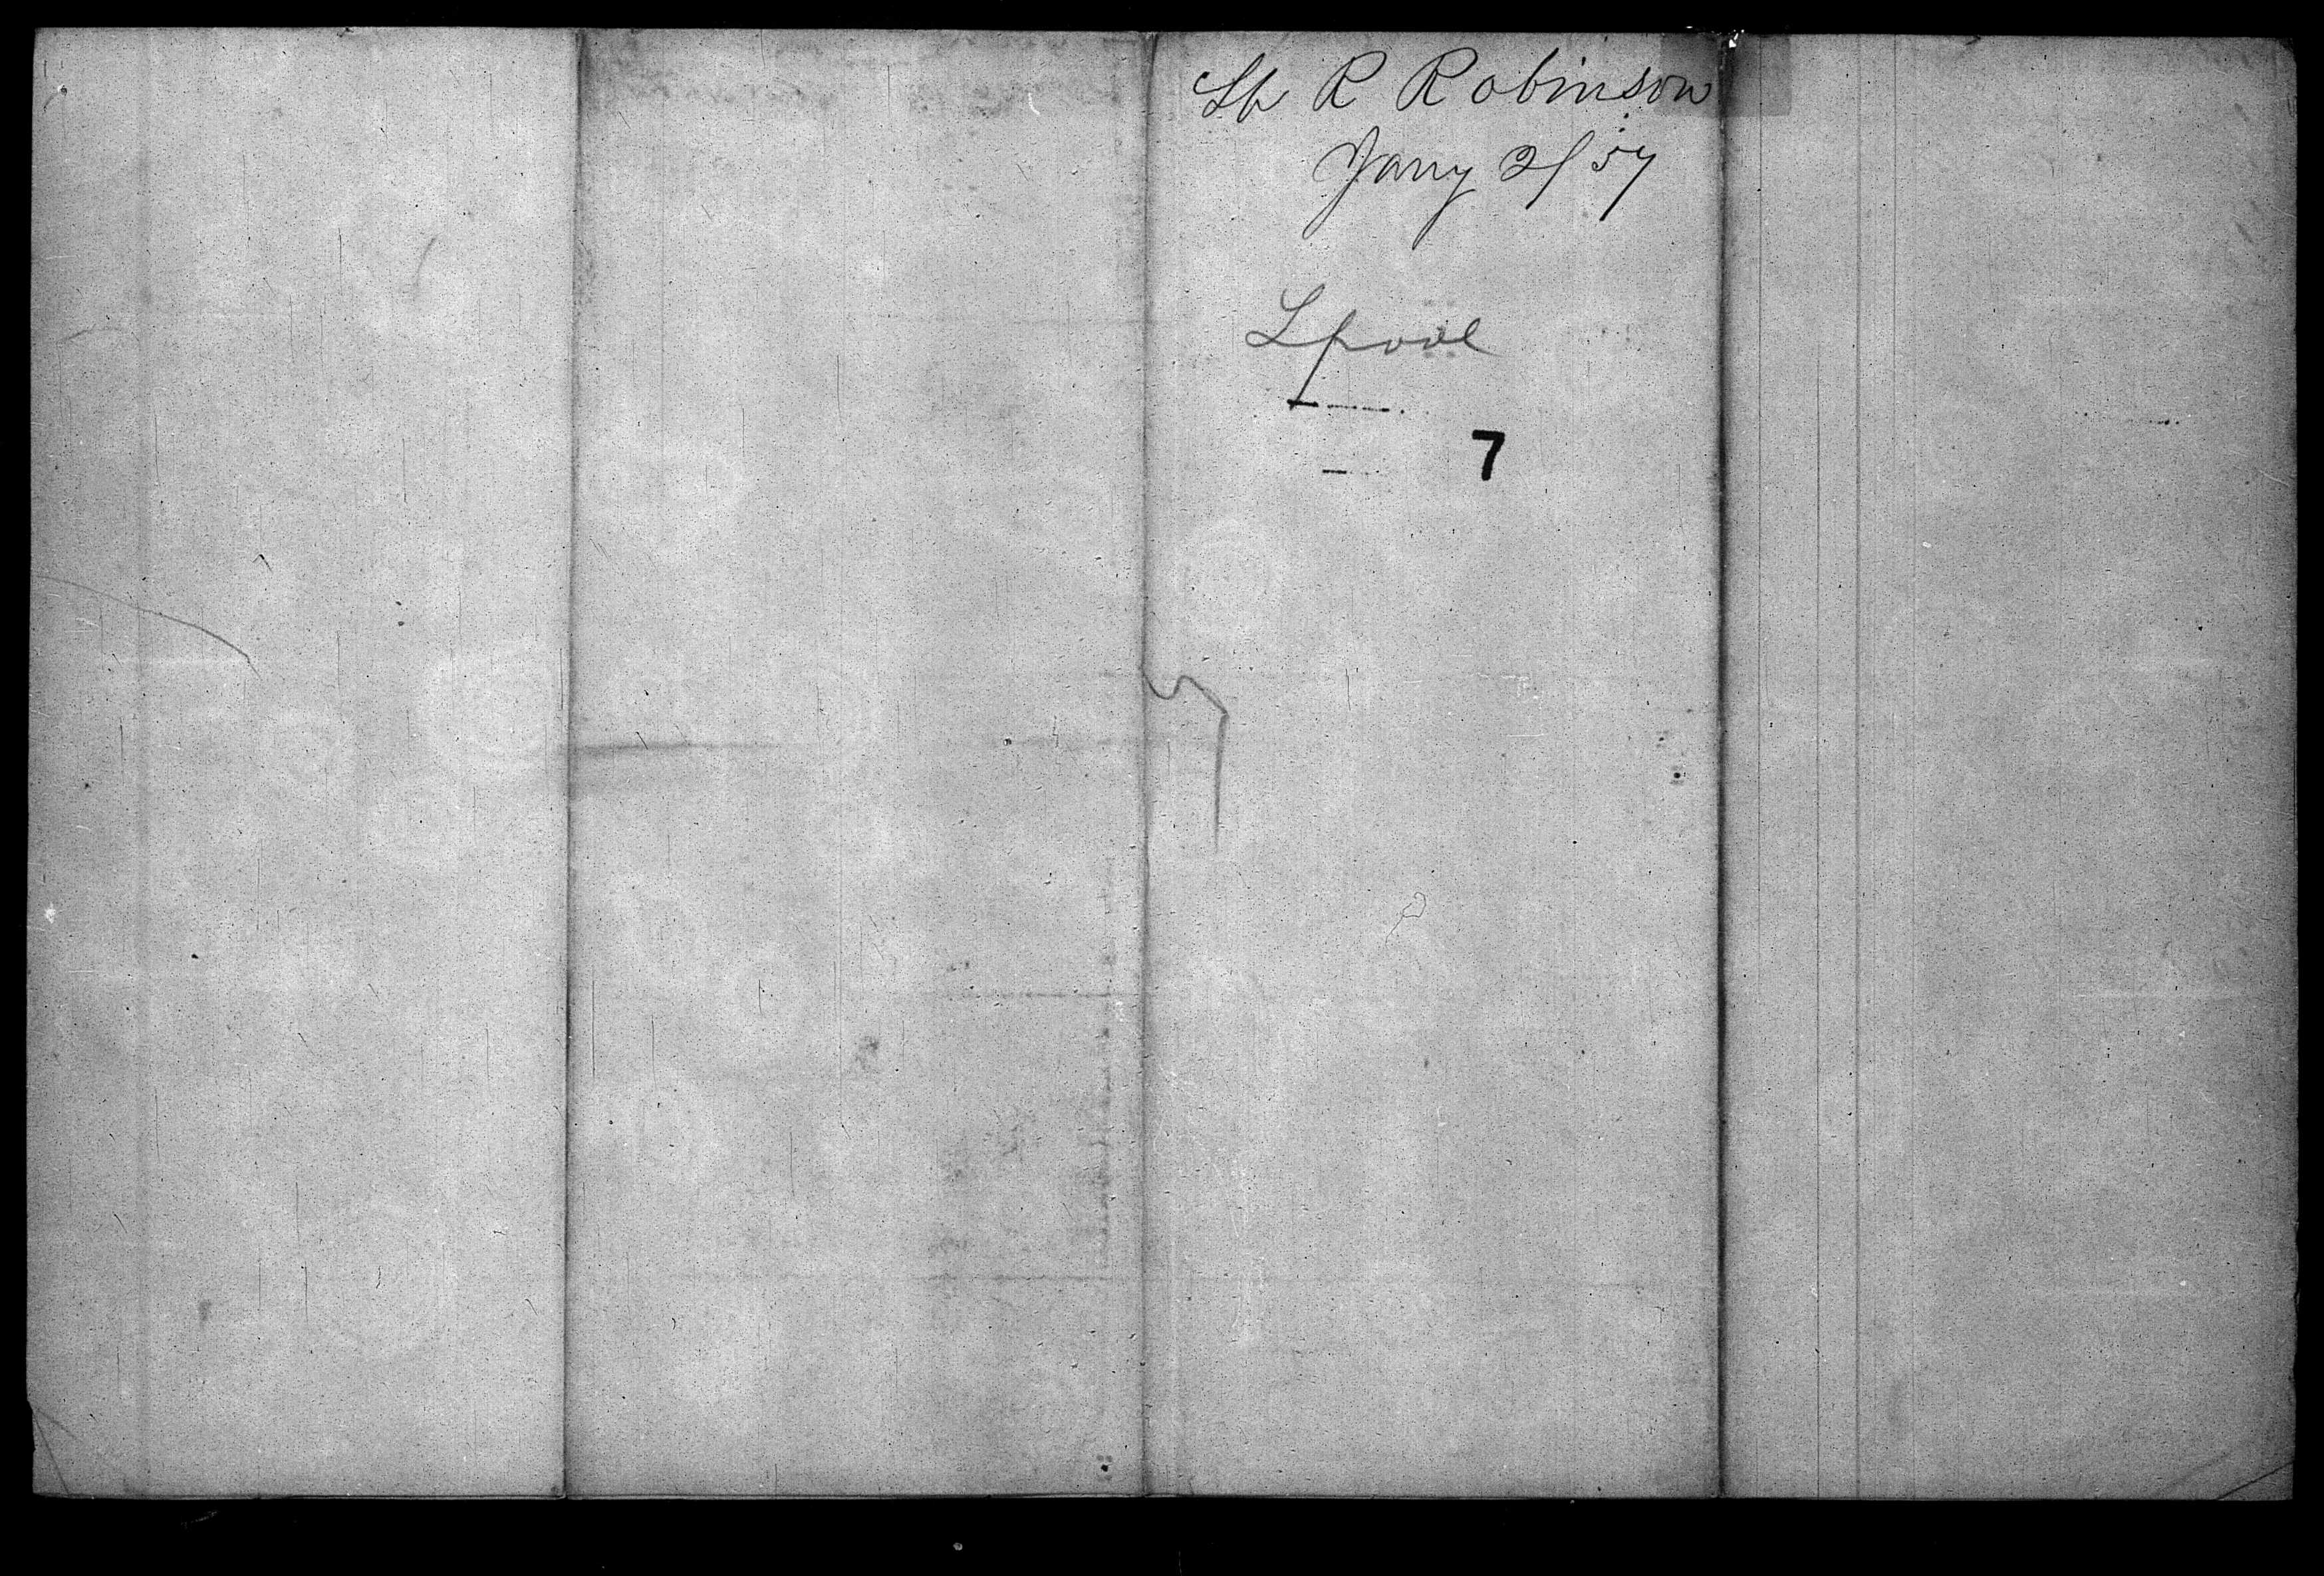 Sh R Robinson
Jany 2/57
Lpool
7